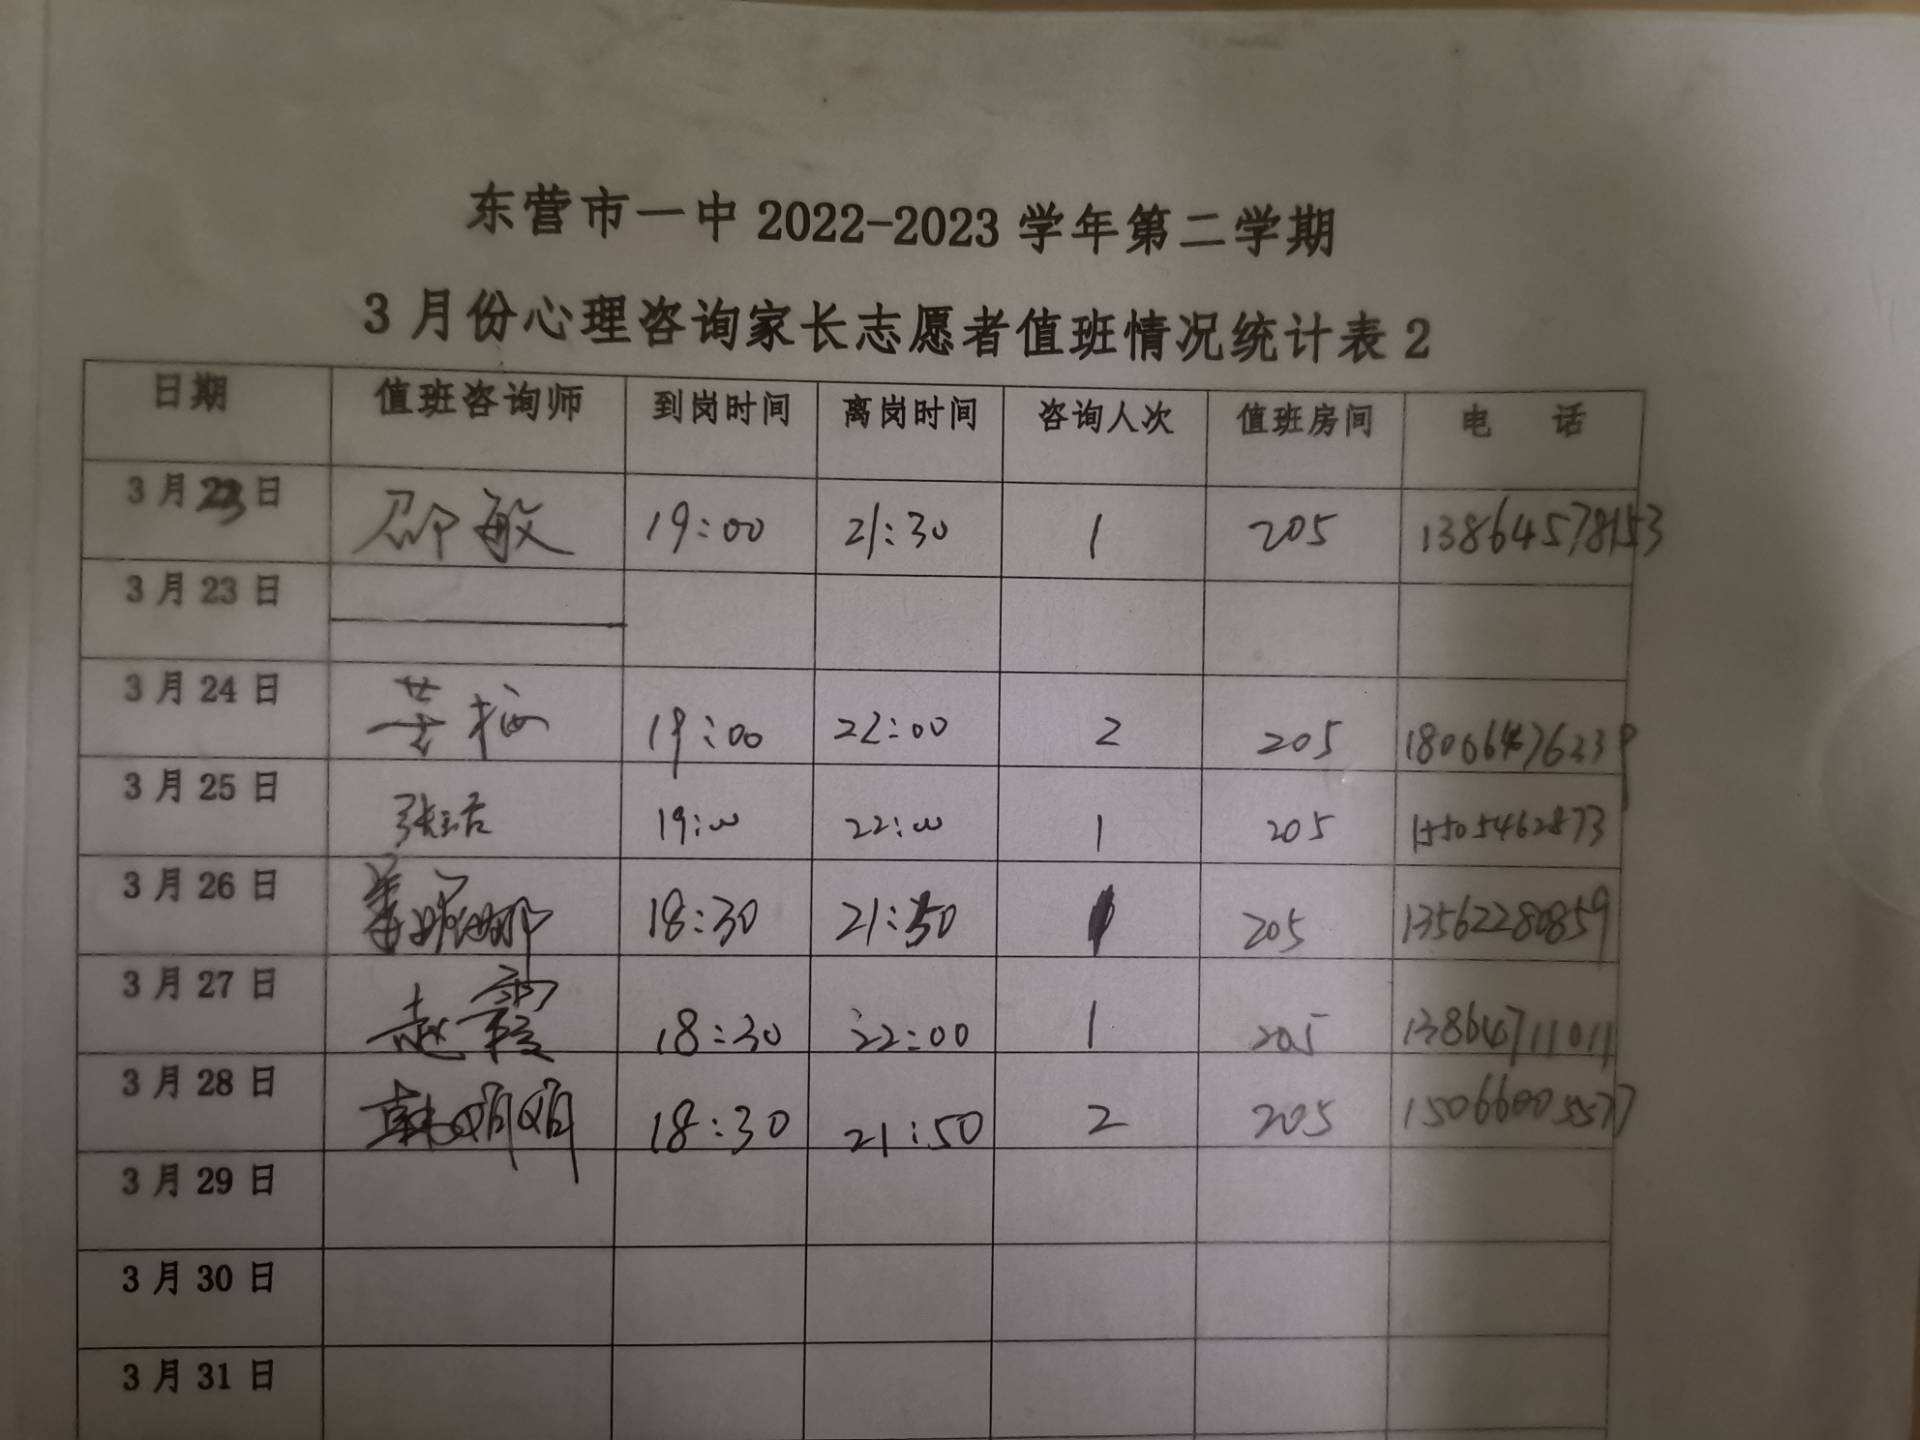 东营市一中 2022-2023 学年第二学期
3 月份心理咨询家长志愿者值班情况统计表 2
日期 值班咨询师 到岗时间 离岗时间 咨询人次 值班房间 电 话
3 月 23 日 邵敏 19:00 21:30 1 205 13864578153
3 月 23 日
3 月 24 日 19:00 22:00 2 205
3 月 25 日 19:00 22:00 1 205 15505462873
3 月 26 日 18:30 21:50 205 13562280859
3 月 27 日 赵霞 18:30 22:00 1 205 13864711011
3 月 28 日 韩娟娟 18:30 21:50 2 205 15066005577
3 月 29 日
3 月 30 日
3 月 31 日